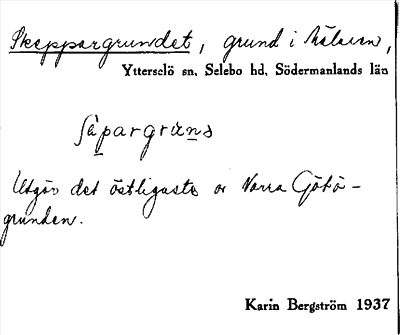 Skeppargrundet, grund i Mälaren,
Ytterselö sn, Selebo hd, Södermanlands län
Utgör det östligaste av Norra
grunden.
Karin Bergström 1937